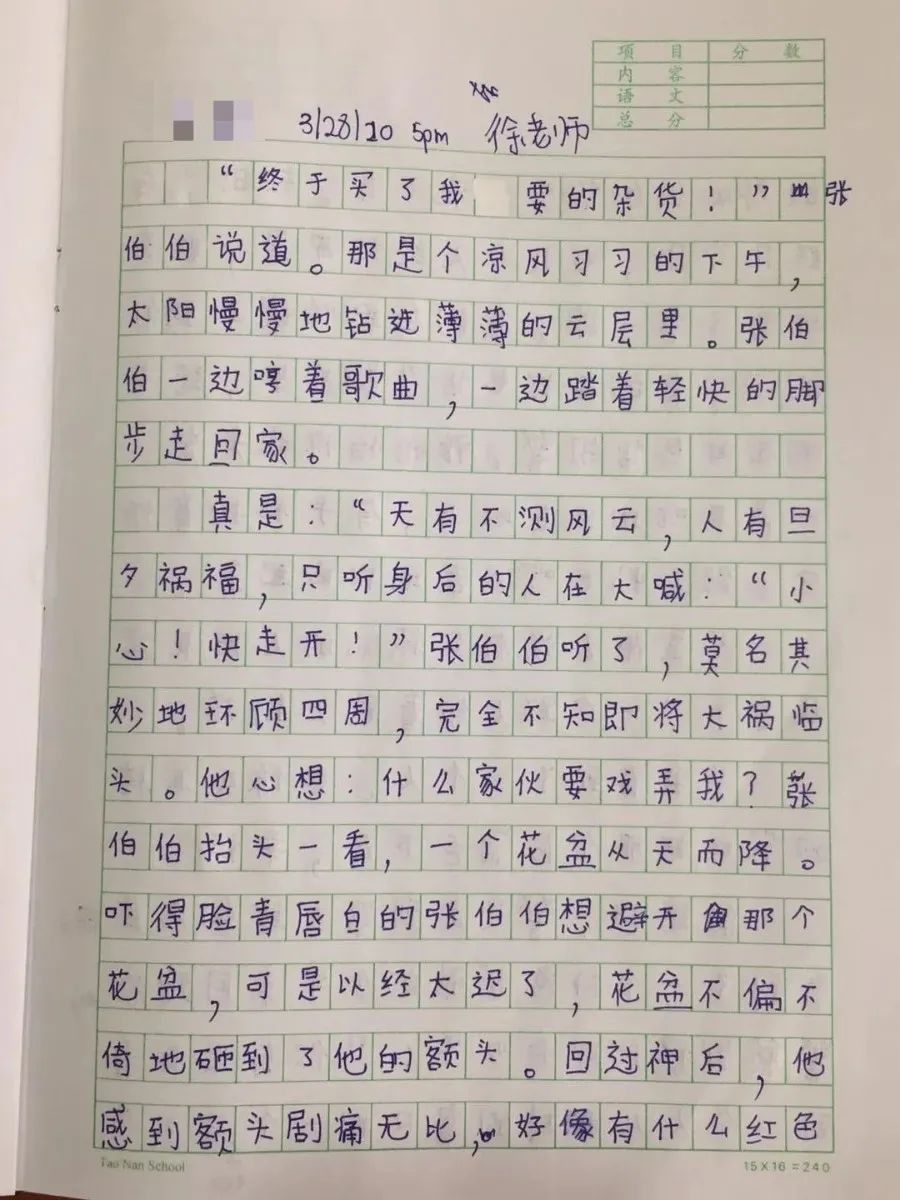 项目 分数
内容
语文
总分
3/28/10 5pm 徐老师
“终于买了我要的杂货！”张
伯伯说道。那是个凉风习习的下午，
太阳慢慢地钻进薄薄的云层里。张伯
伯一边哼着歌曲，一边踏着轻快的脚
步走回家。
真是：“天有不测风云，人有旦
夕祸福，只听身后的人在大喊：“小
心！快走开！”张伯伯听了，莫名其
妙地环顾四周，完全不知即将大祸临
头。他心想：什么家伙要戏弄我？张
伯伯抬头一看，一个花盆从天而降。
吓得脸青唇白的张伯伯想避开那个
花盆，可是以经太迟了，花盆不偏不
倚地砸到了他的额头。回过神后，他
感到额头剧痛无比，好像有什么红色
Tao Nan School 15X16=240